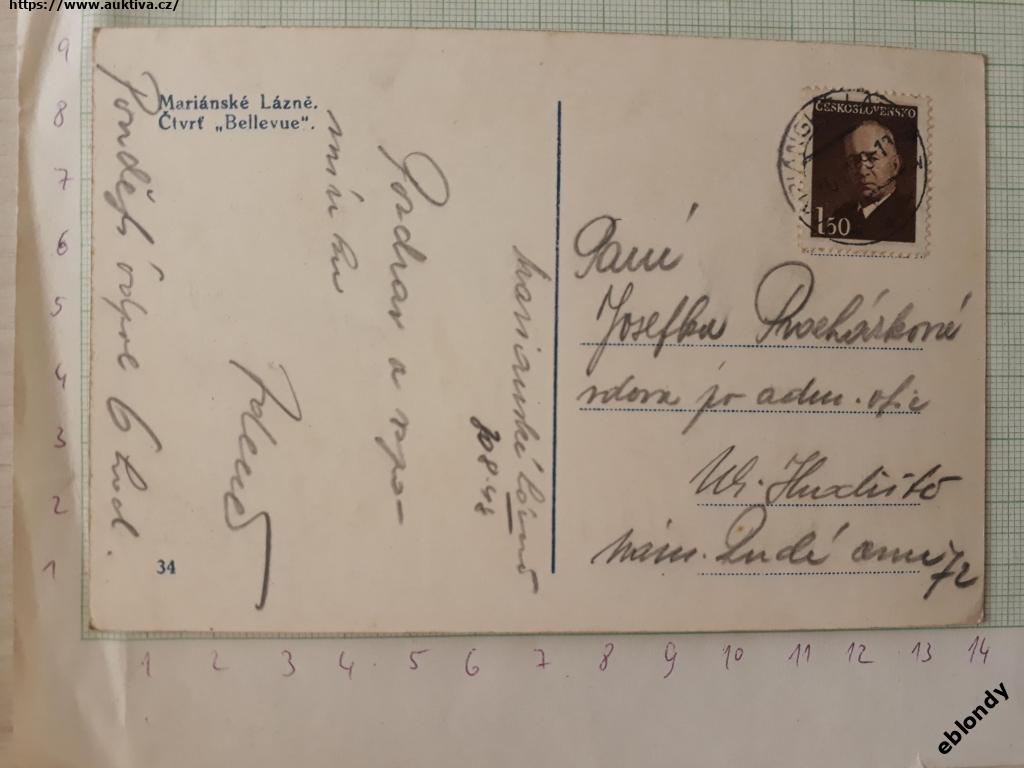 https://www.auktiva.cz/
Mariánské Lázně.
Čtvrť „Bellevue“.
Mariánské Lázně
8.48
Pozdrav a vzpo-
mínku
Zdeněk
Pondělí 6 hod.
34
ČESKOSLOVENSKO
1,50
Paní
Josefka Procházková
vdova po adm. ofic
Uh. Hradiště
nám. Rudé arm. 72
9
8
7
6
5
4
3
2
1
1 2 3 4 5 6 7 8 9 10 11 12 13 14
eblondy